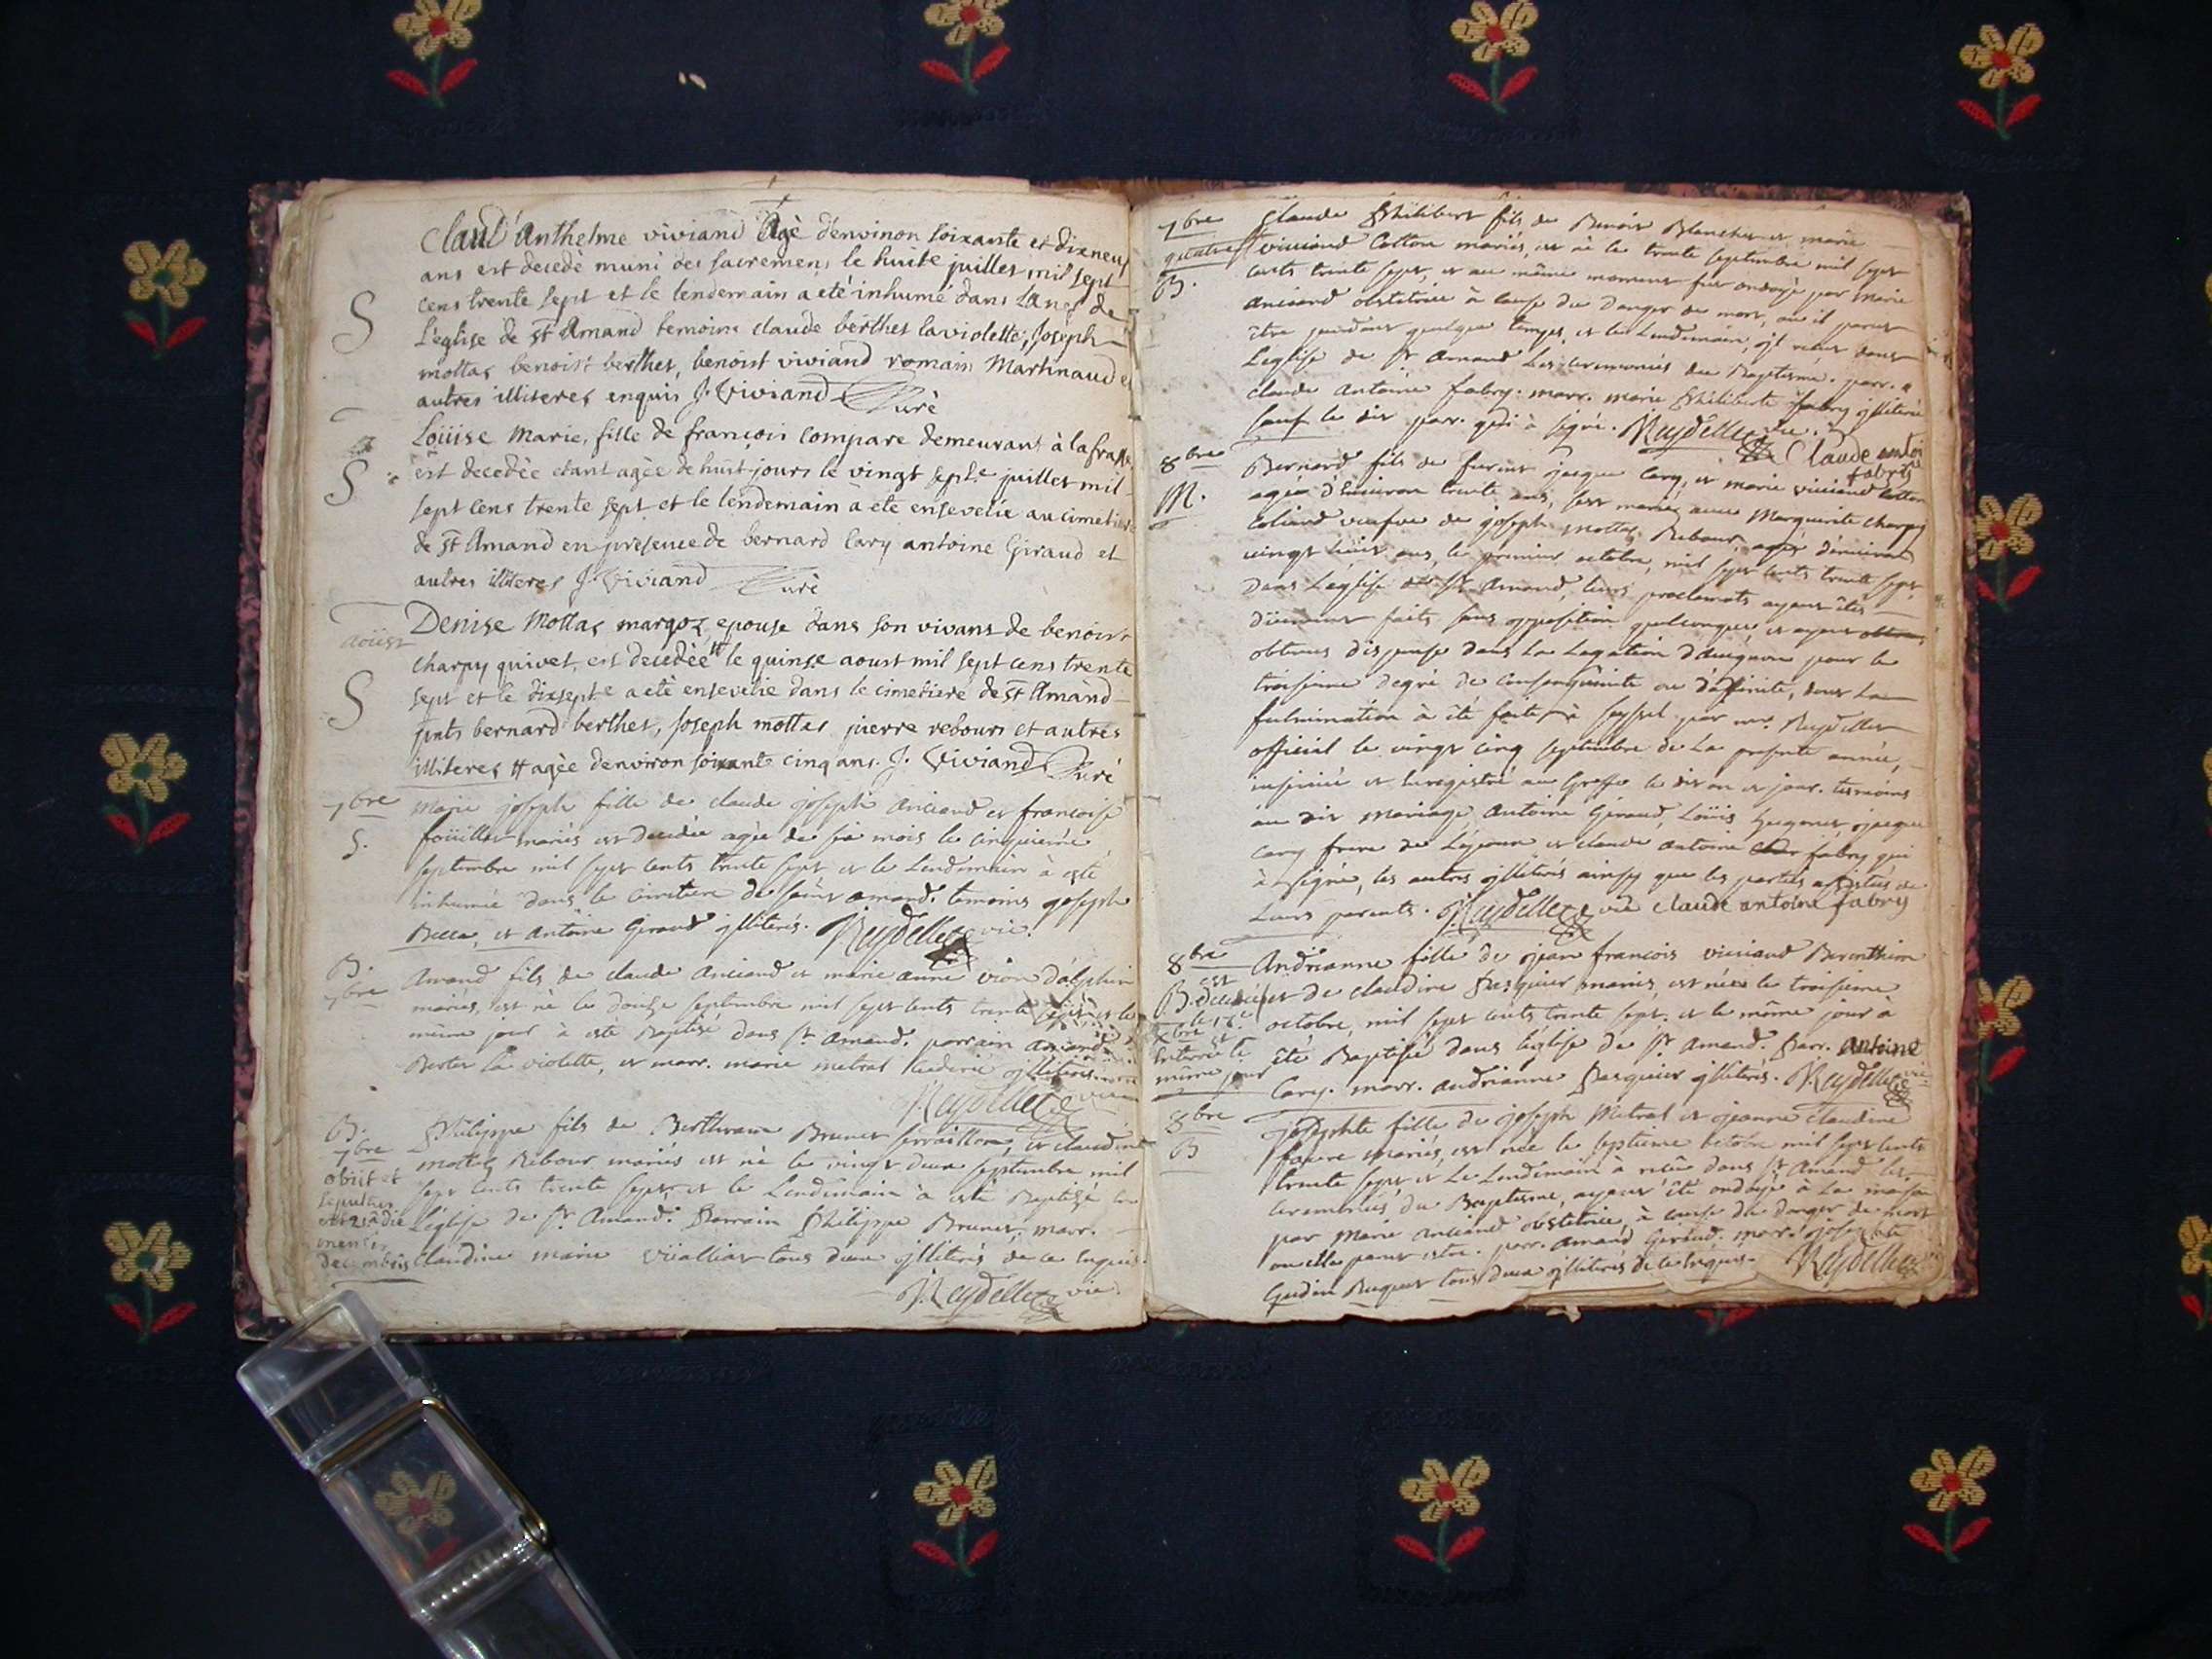 Claud' Anthelme viviand Agè d'envinon soixante et dixneuf
ans est decedè muni des sacremens le huite juillet mil sept
S
cens trente sept et le lendemain a etè inhumé dans la nef de
L'eglise de st Amand temoins claude berthet la violette, Joseph
mottas benoist berthet, benoist viviand romain Martinaud et
autres illiteres enquis J. Viviand Curè
Loüise Marie, fille de françois compare demeurant à la frasse
S
est decedèe etant agèe de huit jours le vingt septe juillet mil
sept cens trente sept et le lendemain a ete ensevelie au cimetiere
de st Amand en presence de bernard Cary antoine Giraud et
autres illiteres J. Viviand Curè
aoüst
Denise Mottas margoz epouse dans son vivant de benoist
charpy quivet, est decedèe # le quinse aoust mil sept cens trente
S
sept et le dixsepte a etè ensevelie dans le cimetiere de st Amand
pnts bernard berthet, Joseph mottas pierre rebours et autres
illiteres # agèe d'environ soixante cinq ans. J. Viviand Curé
7bre
marie joseph fille de claude joseph anciand et francoise
S.
foüillet mariés est decedée agée de six mois le cinquieme
septembre mil sept cents trente sept et le Lendemain à esté
inhumée dans le cimitiere de saint amand. temoins joseph
Becca, et Antoine Geraud jlliterés. Reydellet vic.
B.
7bre
Amand fils de claude Anciand et marie anne vion d'alphin
mariés, est nè le douze septembre mil sept cents trente sept, et le
même jour à esté Baptisé dans st amand. parrain amand
Bertet la violette, et marr. marie metral jlliterés
Reydellet vic
B.
7bre
Philippe fils de Berthrand Brunet serraillon, et claudine
obiit et
mottaz Rebour mariés est né le vingt deux septembre mil
sepultus
sept cents trente sept, et le Lendemain à esté Baptizé en
est 25â die
L'église de st Amand. Parrain Philippe Brunet, marr.
mensis
decembris
claudine marie viialliat tous deux jlliterés de ce enquis.
Reydellet vic.
7bre
Claude Philibert fils de Benoit Blanchet et marie
quatre
viviand Cotton mariés, est né le trente septembre mil sept
B.
cents trente sept, et au même moment fut ondoyé par Marie
anciand obstetrice à cause du danger de mort, où il parut
être pendant quelque temps, et le Lendemain, jl receut dans
L'eglise de st Amand Les ceremonies du Baptesme. parr.
claude antoine fabry. marr. marie Philiberte fabry jlliterée
sauf le dit par. qui à signé. Reydellet vic.
Claude antoi
fabry
8bre
Bernard fils de furent jacque Cary, et marie viviand cotton
M.
agée d'Environ trente ans, s'est marié avec Marguerite charpy
Coliand veufve de joseph mottaz Rebour, agée d'environ
vingt huit ans, le premier octobre, mil sept cents trente sept
Dans L'eglise de st Amand, leurs proclamats ayant êtés
düement faits sans opposition quelconque, et ayant
obtenus dispense dans La Legation d'Avignon pour le
troisieme degré de consanguinité ou d'affinité, dont La
fulmination à été faite à seyssel par mr. Reydellet
official le vingt cinq septembre de La presente année,
insinuée et enregistré au Greffe le dit an et jour. temoins
au dit mariage, Antoine Géraud, Loüis jacque
cary frere de L'epoux et claude antoine fabry qui
à signé, les autres jlliterés ainsy que les parties assistés de
Leurs parents. Reydellet vic claude antoine fabry
8bre
Andrianne fille de jean francois viviand Berenthion
B. est decedée
et de claudine Pasquier mariés, est née le troisieme
le 18e
octobre, mil sept cents trente sept, et le même jour à
enterrée le
été Baptisée dans L'église de st Amand. Parr. Antoine
même jour
Cary. marr. andrianne Pasquier jlliterés. Reydellet vic
8bre
josephte fille de joseph Metral et jeanne claudine
B
favre mariés, est née le septieme octobre mil sept cents
trente sept et Le Lendemain à reçû dans st Amand les
ceremonies du Baptesme, ayant êté ondoyé à La maison
par Marie anciand obstetrice, à cause du danger de mort
ou elle parut estre. parr. Amand Geraud. marr. josephte
Gudin Buquet tous deux jlliterés de ce enquis. Reydellet